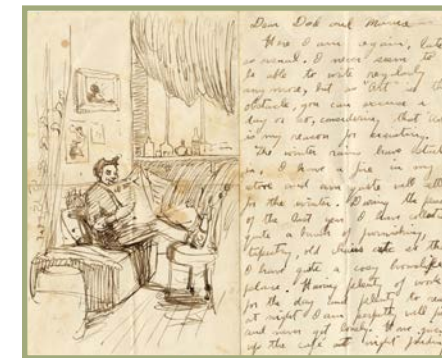 Dear Dad and Mama
Here I am again, late
as usual. I never seem to
be able to write regularly
any more, but as "Art" is the
obstacle, you can excuse a
day or so, considering that
is my reason for
The winter rains have
in. I have a fire in my
stove and am quite well
for the winter. During the
of the last year I have
quite a bunch of furnishing,
tapestry, old so that
I have quite a cosy
place. Having plenty of work
for the day and plenty to
at night I am perfectly well
and never get lonely. Have
up the café at night